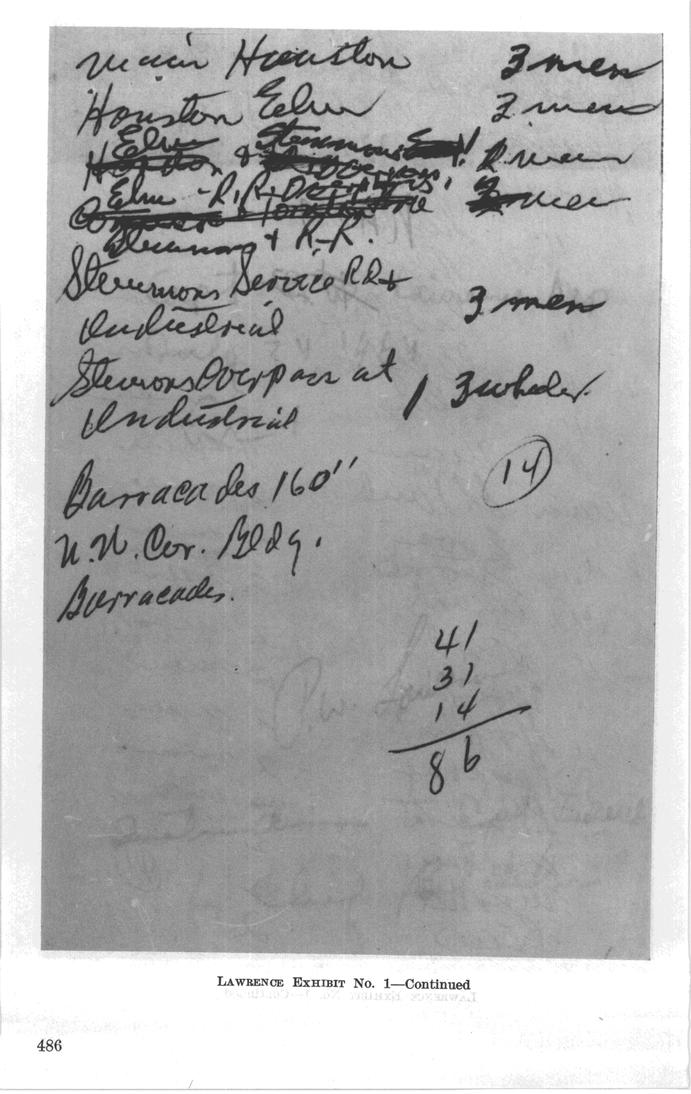 Main Houston 3 men
Houston Elm 3 men
Elm Stemmons
& men
Elm - R.R. Overpass, men
Stemmons + R.R.
Stemmons Service RD +
Industrial 3 men
Stemmons Overpass at
Industrial 1 3 wheeler.
14
Barracades 160"
U.N. Cor. Bldg.
Barracades.
41
31
14
86
LAWRENCE EXHIBIT No. 1—Continued
486